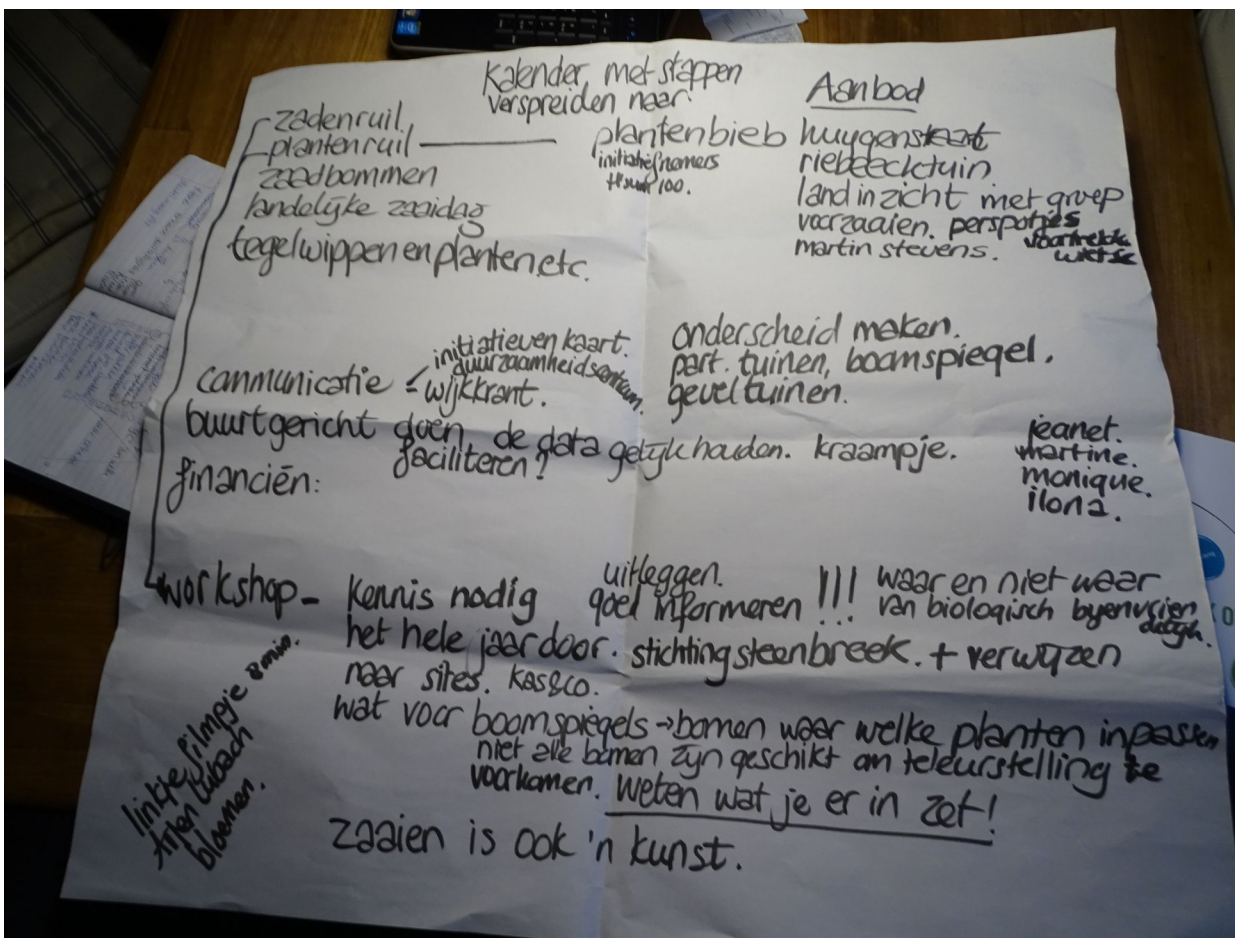 Kalender met stappen
verspreiden naar:
zadenruil.
plantenruil
zaadbommen
landelijke zaaidag
tegelwippen en planten etc.
plantenbieb
initiatiefnemers
100.
Aanbod
huygenstaat
riebeecktuin
land in zicht met groep
voorzaaien. perspotjes
martin stevens.
wietse
communicatie
initiatieven kaart.
duurzaamheidscentrum.
wijkkrant.
onderscheid maken.
part. tuinen, boomspiegel.
geveltuinen.
buurtgericht doen, de data gelijk houden. kraampje.
faciliteren?
financiën:
jeanet.
martine.
monique.
ilona.
workshop - kennis nodig
uitleggen.
goed informeren !!!
waar en niet waar
van biologisch byenvrien
het hele jaar door. stichting steenbreek. + verwyzen
naar sites. kas&co.
wat voor boomspiegels → bomen waar welke planten inpassen
niet alle bomen zyn geschikt om teleurstelling te
voorkomen. weten wat je er in zet!
linkje filmpje 8 min.
Arjen Lubach
bloemen.
zaaien is ook 'n kunst.